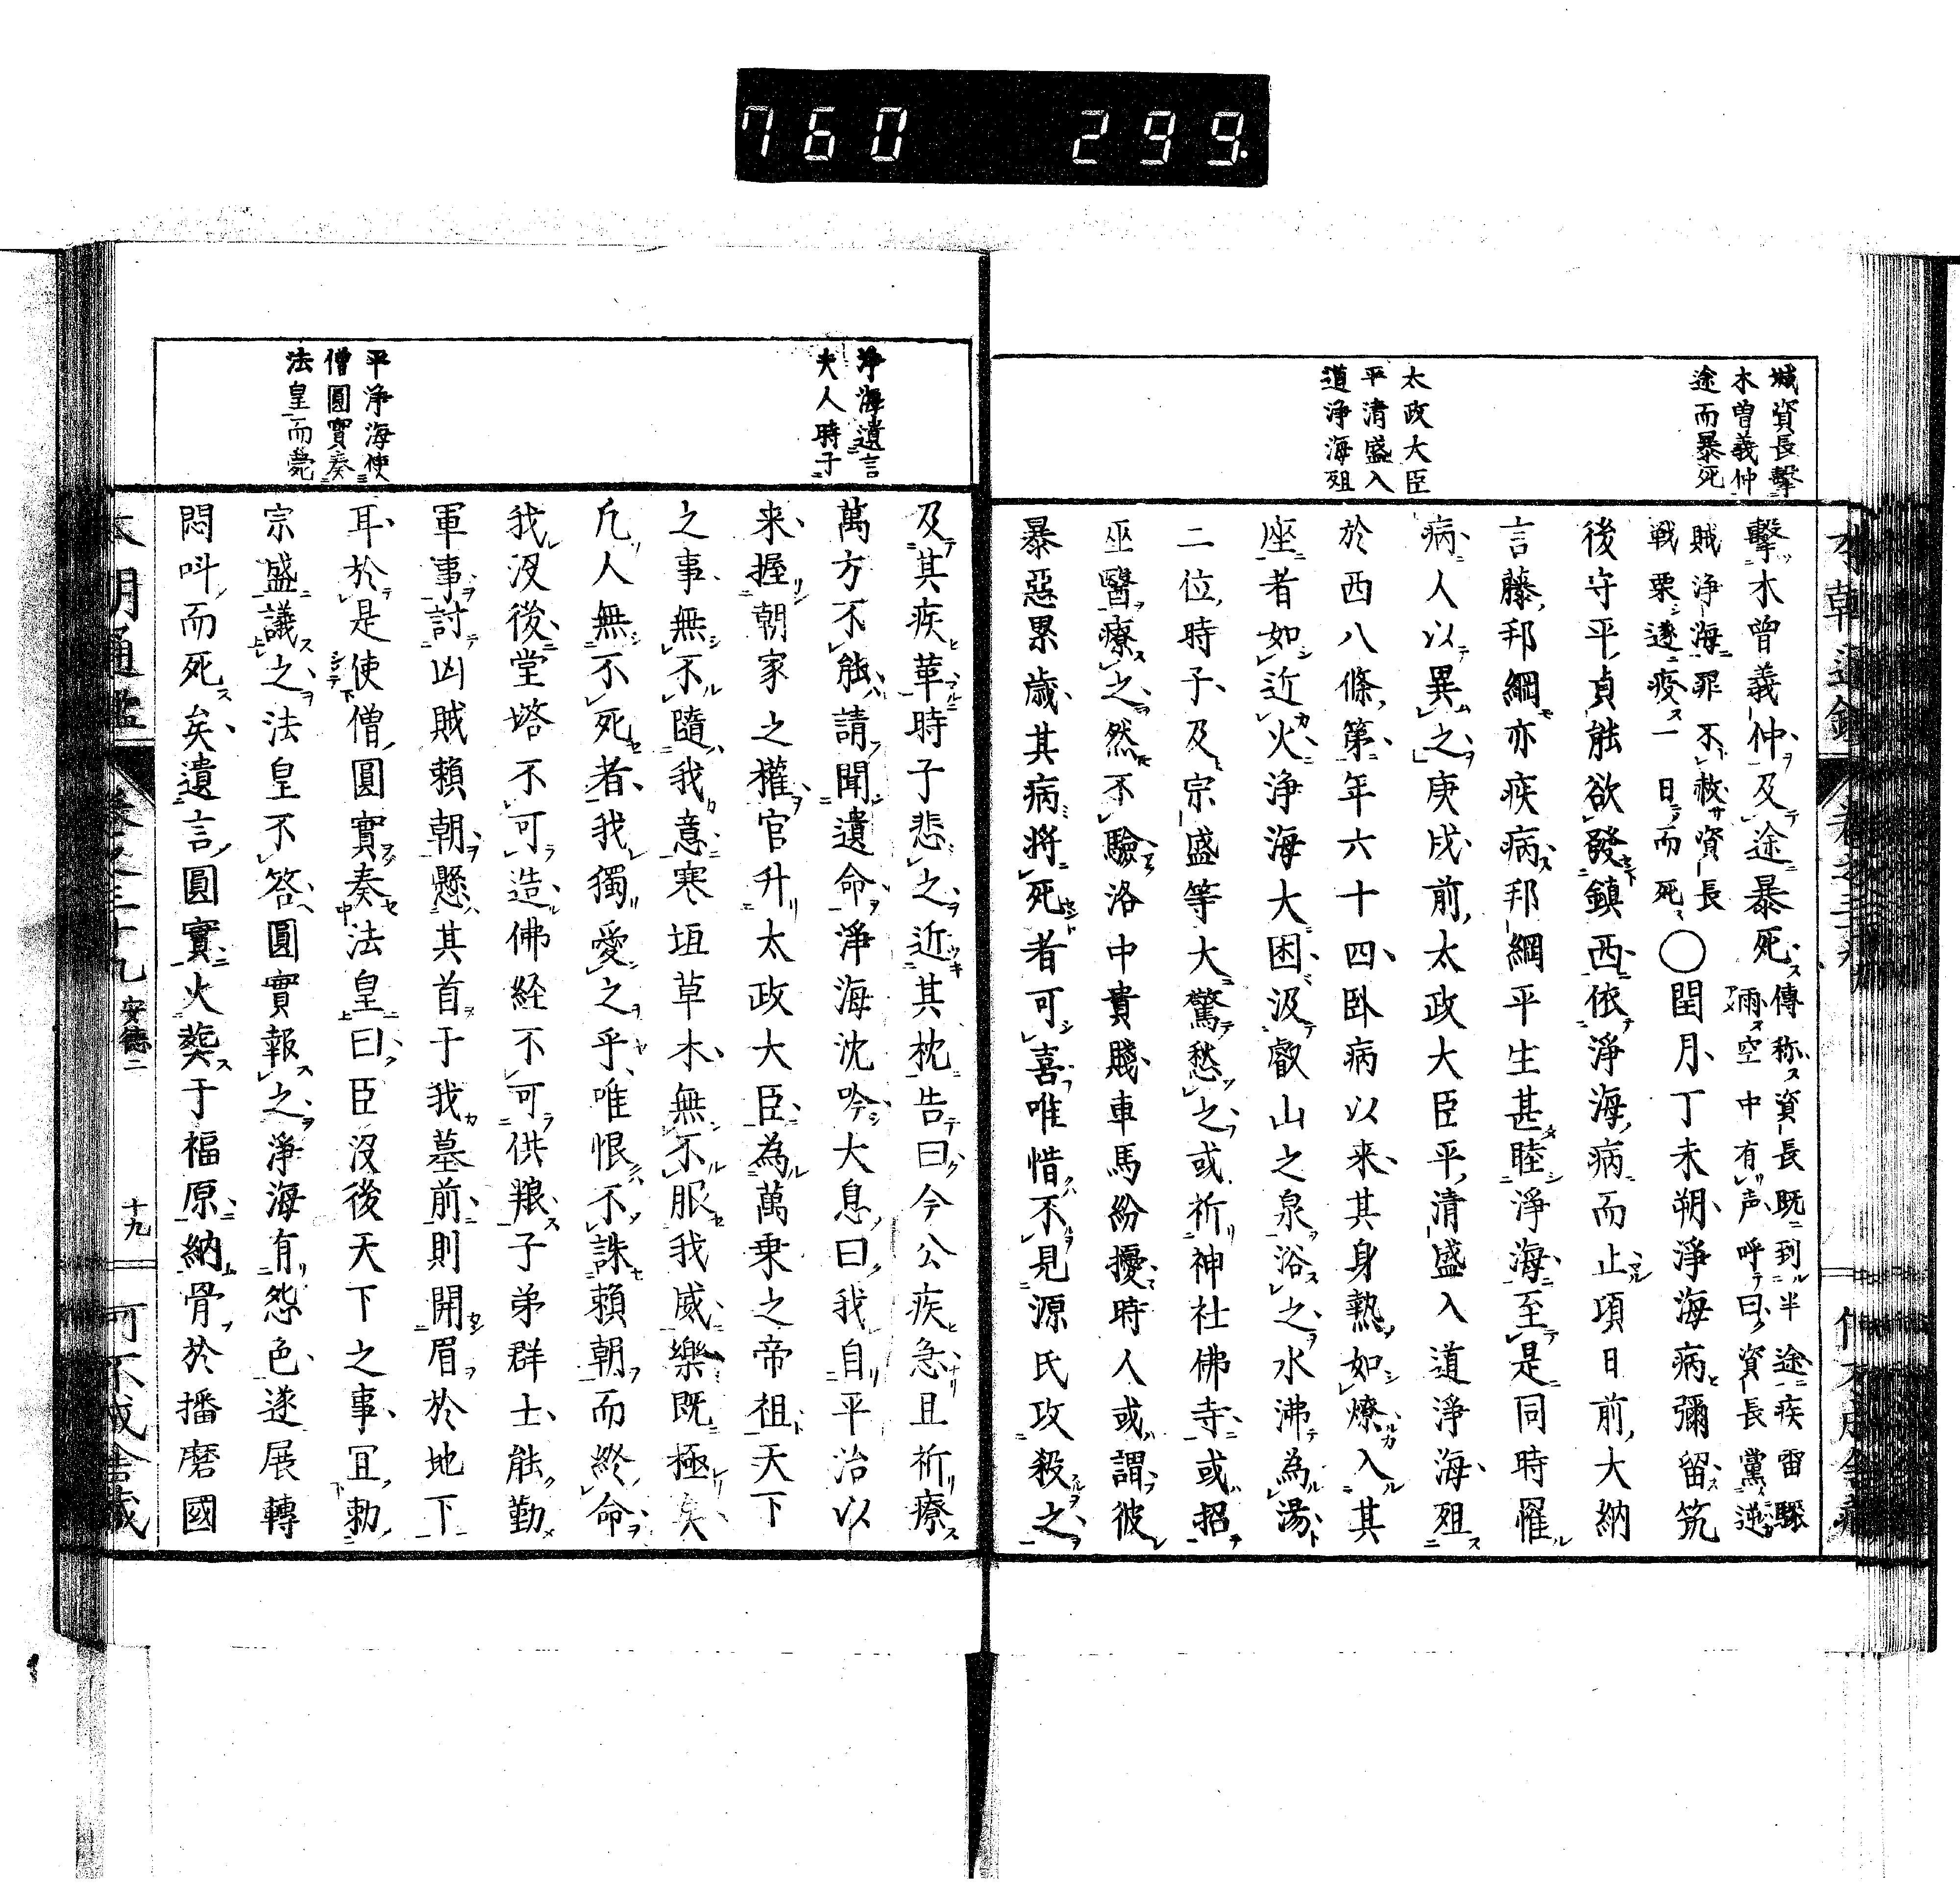 760 299
城資長擊
木曽義仲
途而暴死
太政大臣
平清盛入
道淨海殂
擊木曽義仲及途暴死
傳称資長既到半途疾雷驟
雨空中有声呼曰資長黨逆
賊淨海罪不赦資長
戦栗遂疫一日而死
○閏月丁未朔淨海病彌留筑
後守平貞能欲發鎮西依淨海病而止項日前大納
言藤邦綱亦疾病邦綱平生甚睦淨海至是同時罹
病人以異之庚戌前太政大臣平清盛入道淨海殂
於西八條第年六十四卧病以来其身熱如燎入其
座者如近火淨海大困汲叡山之泉浴之水沸為湯
二位時子及宗盛等大驚愁之或祈神社佛寺或招
巫醫療之然不驗洛中貴賤車馬紛擾時人或謂彼
暴惡累歳其病将死者可喜唯惜不見源氏攻殺之
淨海遺言
夫人時子
平淨海使
僧圓實奏
法皇而薨
及其疾革時子悲之近其枕告曰今公疾急且祈療
萬方不能請聞遺命淨海沈吟大息曰我自平治以
来握朝家之權官升太政大臣為萬乗之帝祖天下
之事無不隨我意寒垣草木無不服我威樂既極矣
凡人無不死者我獨愛之乎唯恨不誅賴朝而終命
我沒後堂塔不可造佛経不可供粮子弟群士能勤
軍事討凶賊賴朝懸其首于我墓前則開眉於地下
耳於是使僧圓實奏法皇曰臣沒後天下之事冝勅
宗盛議之法皇不答圓實報之淨海有怨色遂展轉
悶呌而死矣遺言圓實火葬于福原納骨於播磨國
本朝通鑑 卷之三十九 安德二 十九